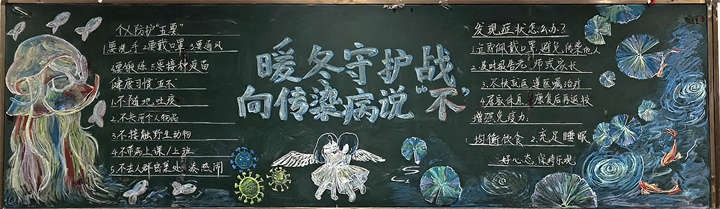 个人防护"五要"
1.要洗手 2.要戴口罩 3.要通风
健康习惯五不
1.不随地吐痰
2.不共用个人物品
3.不接触野生动物
4.不带病上课/上班
5.不去人群密集处凑热闹
暖冬守护战
向传染病说"不"
发现症状怎么办?
1.立即佩戴口罩,避免传染他人
2.及时报告老师或家长
3.尽快就医遵医嘱治疗
4.居家休息,康复后再返校
增强免疫力
1.均衡饮食 2.充足睡眠
好心态,保持乐观